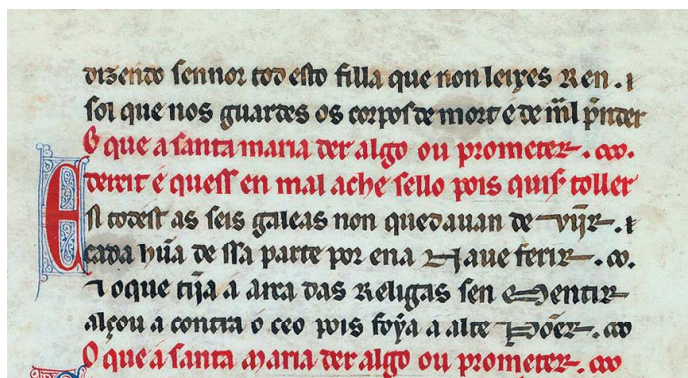 dizendo sennor tod esto filla que non leixes Ren . ⁊
sol que nos guardes os corpos de mort e de mal p̃nder
O que a santa maria der algo ou prometer .
dereit é quess en mal ache sello pois quisʼ toller
E si todest as seis galeas non quedauan de vĩjr . ⁊
cada hũa de ssa parte por ena Naue ferir .
⁊ o que tĩja a arca das Religas sen Mentir
alçou a contra o ceo pois foÿa a alte Põer .
O que a santa Maria der algo ou prometer .